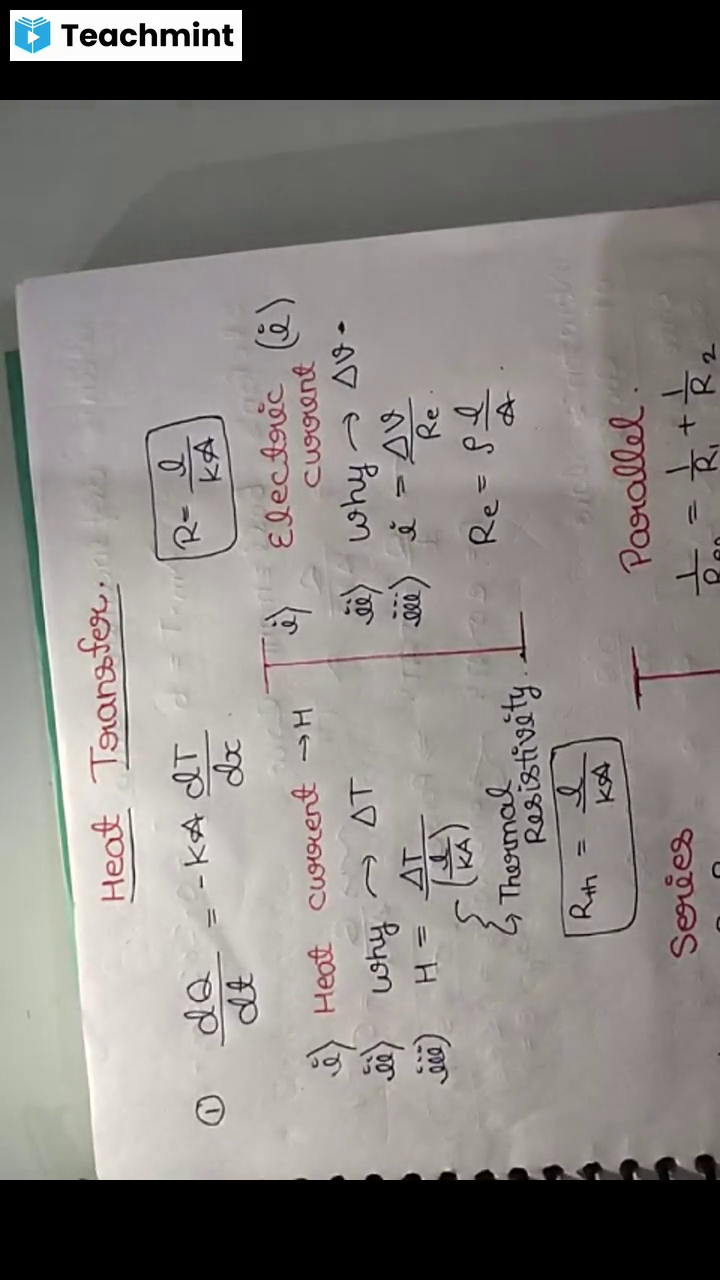 Teachmint
Heat Transfer.
① dQ/dt = -KA dT/dx
R = l/KA
i) Heat current → H
ii) why → ΔT
iii) H = ΔT/(l/KA)
{
↳ Thermal
Resistivity.
Rth = l/KA
i) Electric (i)
current
ii) why → ΔV.
iii) i = ΔV/Re.
Re = ρ l/A.
Series
Parallel.
= 1/R1 + 1/R2